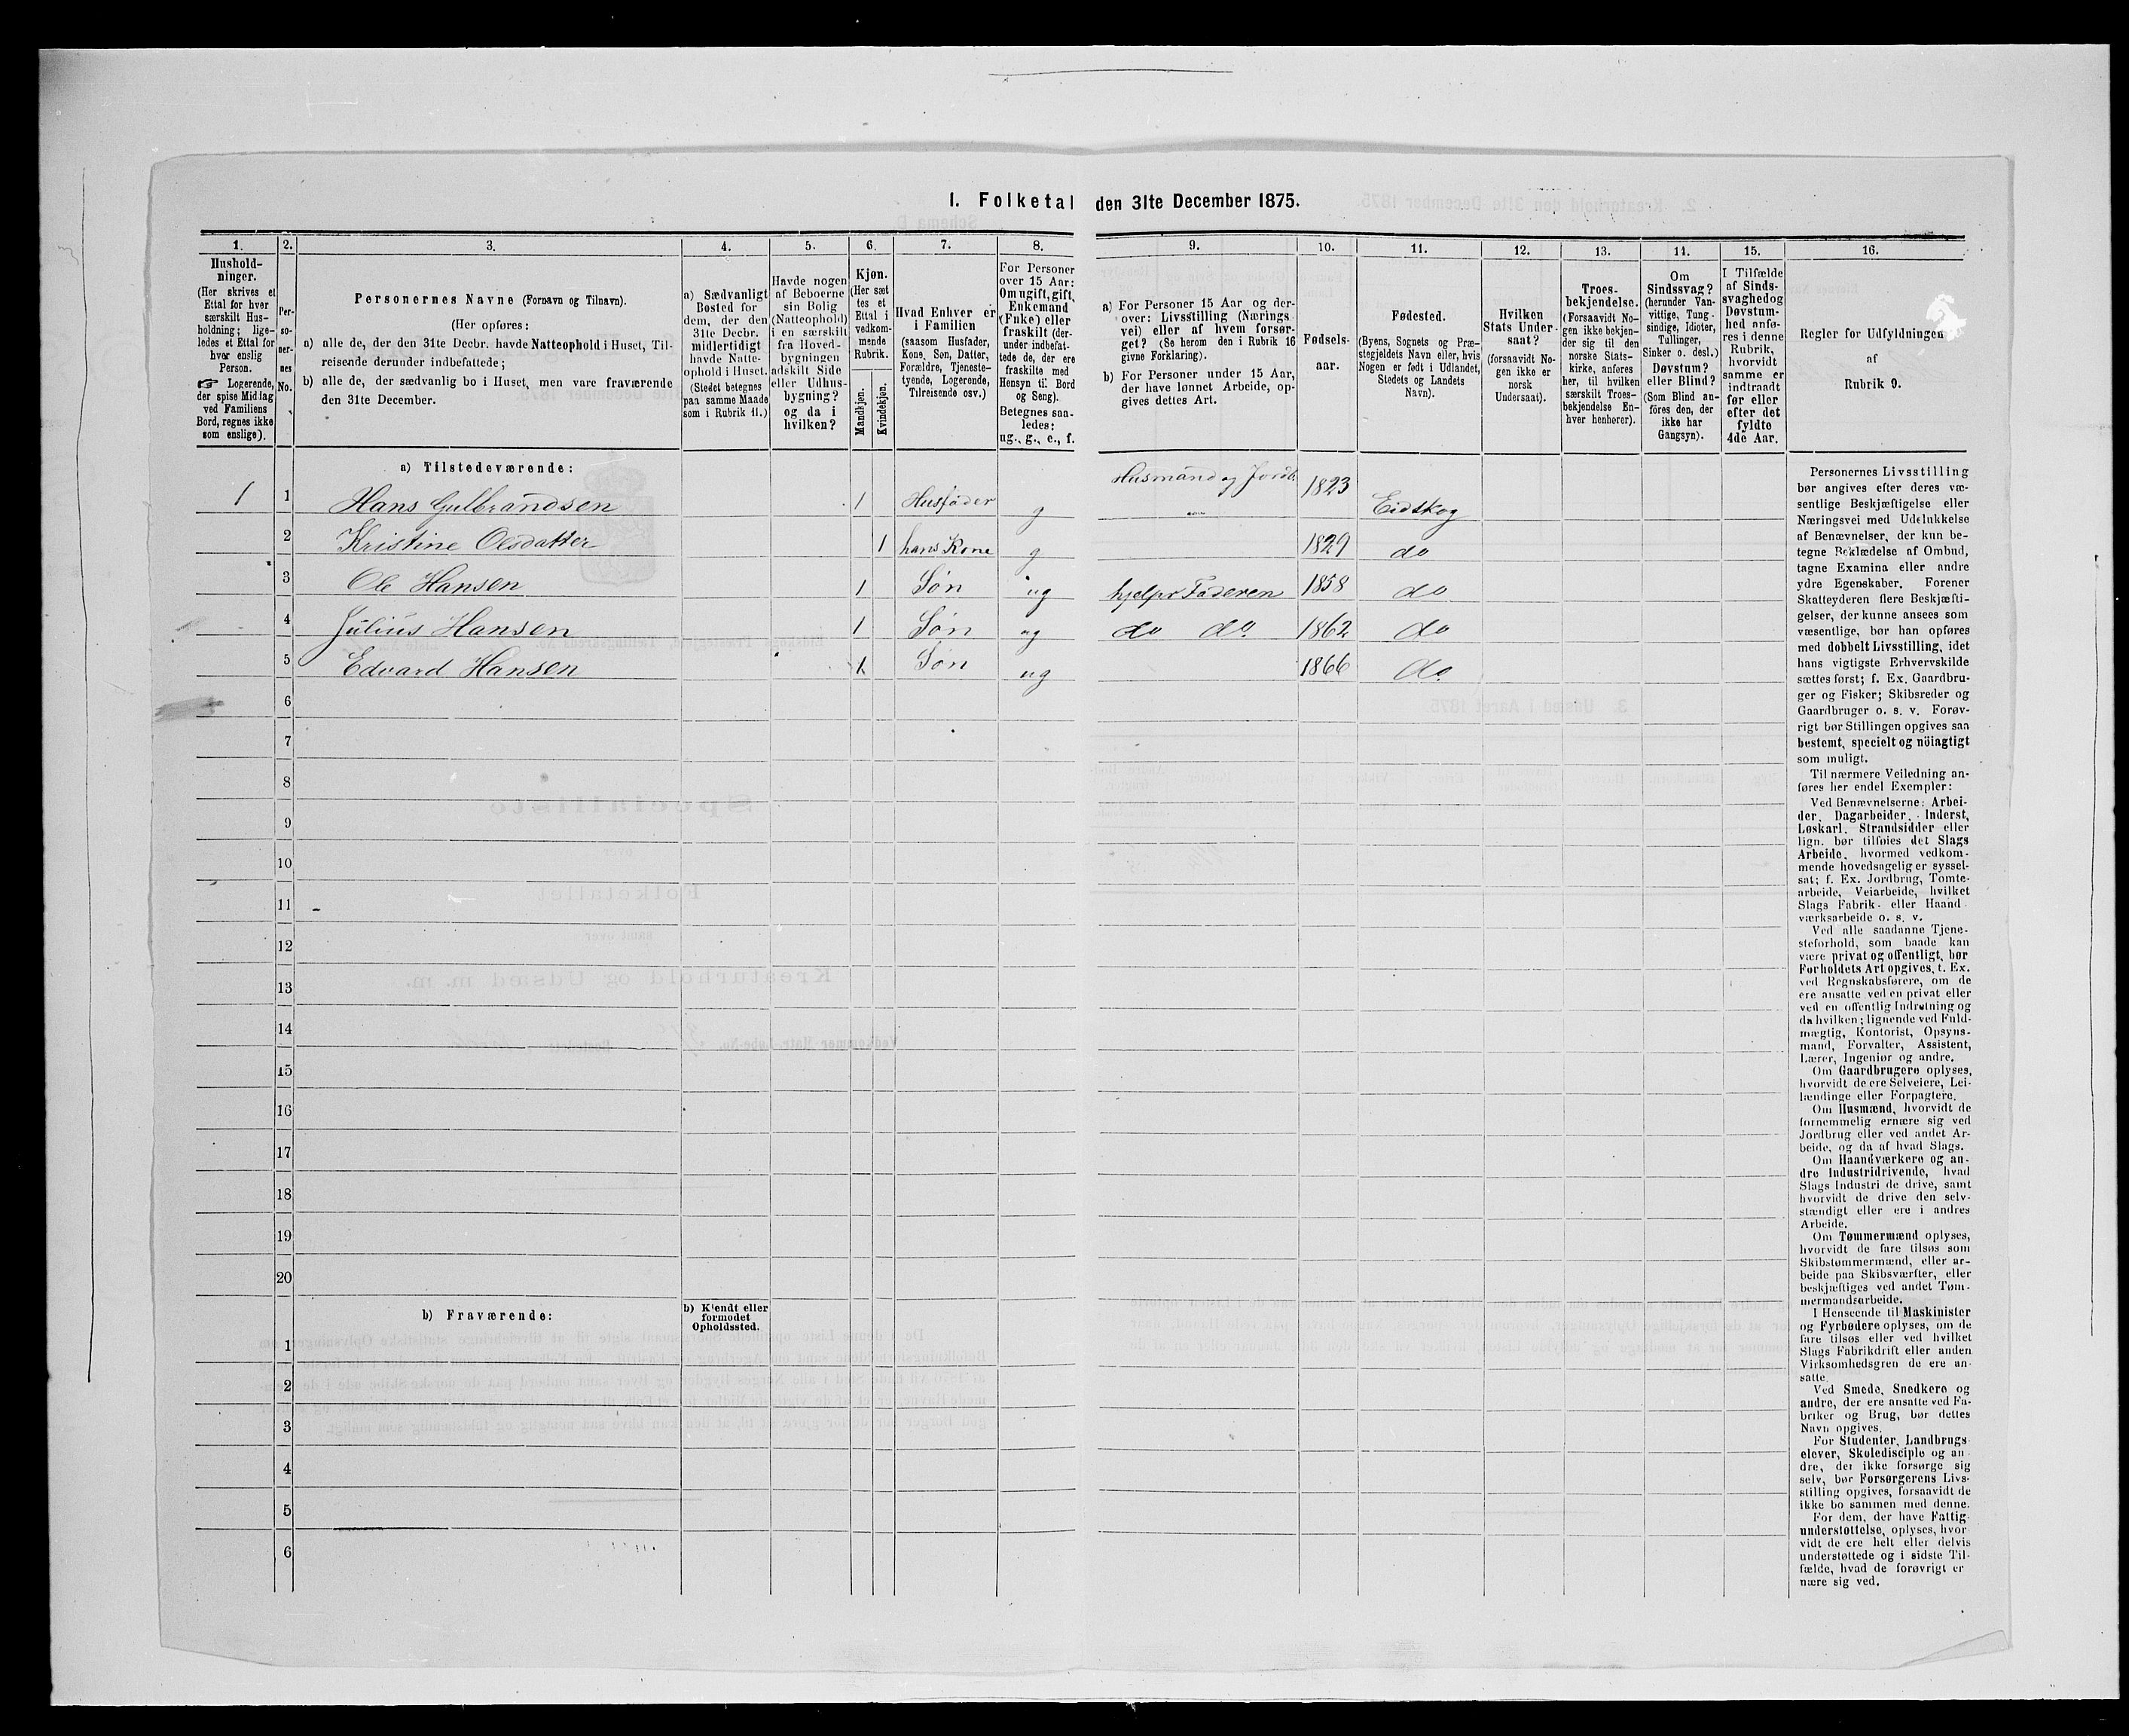 1. Folketal den 31te December 1875.
1. 2. 3. 4. 5. 6. 7. 8. 9. 10. 11. 12. 13. 14. 15. 16.
Hushold-
ninger.
(Her skrives et
Ettal for hver
særskilt Hus-
holdning; lige-
ledes et Ettal for
hver enslig
Person.
☞ Logerende,
der spise Middag
ved Familiens
Bord, regnes ikke
som enslige).
Per-
so-
ner-
nes
No.
Personernes Navne (Fornavn og Tilnavn).
(Her opføres:
a) alle de, der den 31te Decbr. havde Natteophold i Huset, Til-
reisende derunder indbefattede;
b) alle de, der sædvanlig bo i Huset, men vare fraværende
den 31te December.
a) Sædvanligt
Bosted for
dem, der den
31te Decbr.
midlertidigt
havde Natte-
ophold i Huset.
(Stedet betegnes
paa samme Maade
som i Rubrik 11.)
Havde nogen
af Beboerne
sin Bolig
(Natteophold)
i en særskilt
fra Hoved-
bygningen
adskilt Side
eller Udhus-
bygning?
og da i
hvilken?
Kjøn.
(Her sæt
tes et
Ettal i
vedkom-
mende
Rubrik.
Mandkjøn.
Kvindekjøn.
Hvad Enhver er
i Familien
(saasom Husfader,
Kone, Søn, Datter,
Forældre, Tjeneste-
tyende, Logerende,
Tilreisende osv.)
For Personer
over 15 Aar:
Om ugift, gift,
Enkemand
(Enke) eller
fraskilt (der-
under indbefat-
tede de, der ere
fraskilte med
Hensyn til Bord
og Seng).
Betegnes saa-
ledes:
ug., g., e., f.
a) For Personer 15 Aar og der-
over: Livsstilling (Nærings
vei) eller af hvem forsør-
get? (Se herom den i Rubrik 16
givne Forklaring).
b) For Personer under 15 Aar,
der have lønnet Arbeide, op-
gives dettes Art.
Fødsels-
aar.
Fødested.
(Byens, Sognets og Præ-
stegjeldets Navn eller, hvis
Nogen er født i Udlandet,
Stedets og Landets
Navn).
Hvilken
Stats Under-
saat?
(forsaavidt No-
gen ikke er
norsk
Undersaat).
Troes-
bekjendelse.
(Forsaavidt No-
gen ikke bekjen-
der sig til den
norske Stats-
kirke, anføres
her, til hvilken
særskilt Troes-
bekjendelse En-
hver henhører).
Om
Sindssvag?
(herunder Van-
vittige, Tung-
sindige, Idioter,
Tullinger,
Sinker o. desl.)
Døvstum?
eller Blind?
(Som Blind an-
føres den, der
ikke har
Gangsyn).
I Tilfælde
af Sinds-
svaghed og
Døvstum-
hed anfø-
res i denne
Rubrik,
hvorvidt
samme er
indtraadt
før eller
efter det
fyldte
4de Aar.
Regler for Udfyldningen
af
Rubrik 9.
a) Tilstedeværende:
1 1 Hans Gulbrandsen 1 Husfader g Husmand og Jordb. 1823 Eidskog
2 Kristine Olsdatter 1 hans Kone g 1829 do
3 Ole Hansen 1 Søn ug hjelper Faderen 1858 do
4 Julius Hansen 1 Søn ug do do. 1862 do
5 Edvard Hansen 1 Søn ug 1866 do.
6
7
8
9
10
11
12
13
14
15
16
17
18
19
20
b) Fraværende:
b) Kjendt eller
formodet
Opholdssted.
1
2
3
4
5
6
Personernes Livsstilling
bør angives efter deres væ-
sentlige Beskjæftigelse eller
Næringsvei med Udelukkelse
af Benævnelser, der kun be-
tegne Beklædelse af Ombud,
tagne Examina eller andre
ydre Egenskaber. Forener
Skatteyderen flere Beskjæfti-
gelser, der kunne ansees som
væsentlige, bør han opføres
med dobbelt Livsstilling, idet
hans vigtigste Erhvervskilde
sættes først; f. Ex. Gaardbru-
ger og Fisker; Skibsreder og
Gaardbruger o. s. v. Forøv-
rigt bør Stillingen opgives saa
bestemt, specielt og nøiagtigt
som muligt.
Til nærmere Veiledning an-
føres her endel Exempler:
Ved Benævnelserne: Arbei-
der, Dagarbeider, Inderst,
Løskarl, Strandsidder eller
lign. bør tilføies det Slags
Arbeide, hvormed vedkom-
mende hovedsagelig er syssel-
sat; f. Ex. Jordbrug, Tomte-
arbeide, Veiarbeide, hvilket
Slags Fabrik- eller Haand-
værksarbeide o. s. v.
Ved alle saadanne Tjene-
steforhold, som baade kan
være privat og offentligt, bør
Forholdets Art opgives, t. Ex.
ved Regnskabsførere, om de
ere ansatte ved en privat eller
ved en offentlig Indretning og
da hvilken; lignende ved Fuld-
mægtig, Kontorist, Opsyns-
mand, Forvalter, Assistent,
Lærer, Ingeniør og andre.
Om Gaardbrugere oplyses,
hvorvidt de ere Selveiere, Lei-
lændinge eller Forpagtere.
Om Husmænd, hvorvidt de
fornemmelig ernære sig ved
Jordbrug eller ved andet Ar-
beide, og da af hvad Slags.
Om Haandværkere og an-
dre Industridrivende, hvad
Slags Industri de drive, samt
hvorvidt de drive den selv-
stændigt eller ere i andres
Arbeide.
Om Tømmermænd oplyses,
hvorvidt de fare tilsøs som
Skibstømmermænd, eller ar-
beide paa Skibsværfter, eller
beskjæftiges ved andet Tøm-
mermandsarbeide.
I Henseende til Maskinister
og Fyrbødere oplyses, om de
fare tilsøs eller ved hvilket
Slags Fabrikdrift eller anden
Virksomhedsgren de ere an-
satte.
Ved Smede, Snedkere og
andre, der ere ansatte ved Fa-
briker og Brug, bør dettes
Navn opgives.
For Studenter, Landbrugs-
elever, Skoledisciple og an-
dre, der ikke forsørge sig
selv, bør Forsørgerens Livs-
stilling opgives, forsaavidt de
ikke bo sammen med denne.
For dem, der have Fattig-
understøttelse, oplyses, hvor-
vidt de ere helt eller delvis
understøttede og i sidste Til-
fælde, hvad de forøvrigt er
nære sig ved.